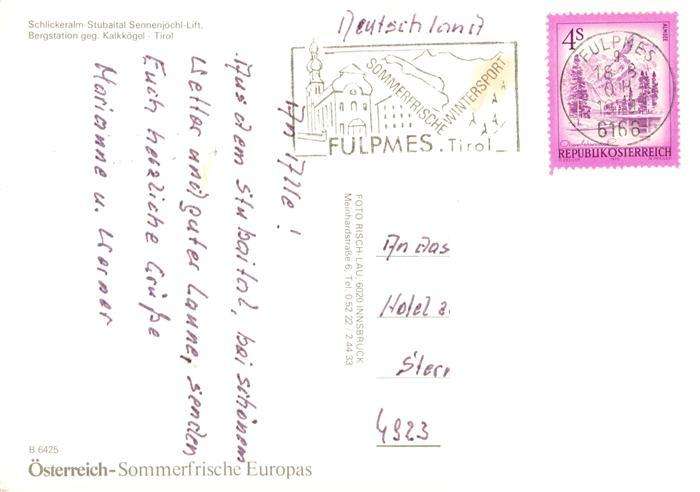 Schlickeralm-Stubaital Sennenjöchl-Lift.
Bergstation geg. Kalkkögel - Tirol
Deutschland
SOMMERFRISCHE WINTERSPORT
FULPMES. Tirol
4S
ALMSEE
REPUBLIK ÖSTERREICH
FULPMES
6166
An Alle!
Aus dem Stubaital, bei schönem
Wetter und guter Laune, senden
Euch herzliche Grüße
Marianne u. Werner
FOTO RISCH-LAU, 6020 INNSBRUCK
Meinhardstraße 6, Tel. 0 52 22 / 2 44 33
An das
Hotel z.
Stern
4923
B 6425
Österreich-Sommerfrische Europas